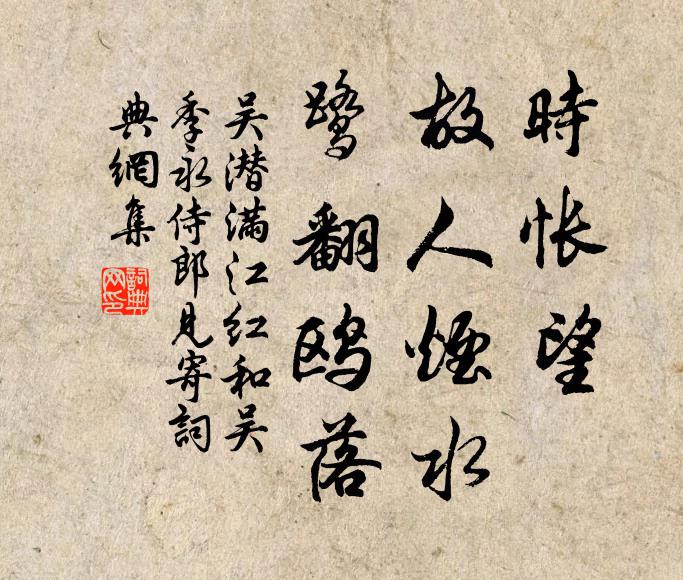 時悵望
故人煙水
鷺翻鸥落
吴潜满江红和吴
季永侍郎見寄詞
典網集
詞典网印